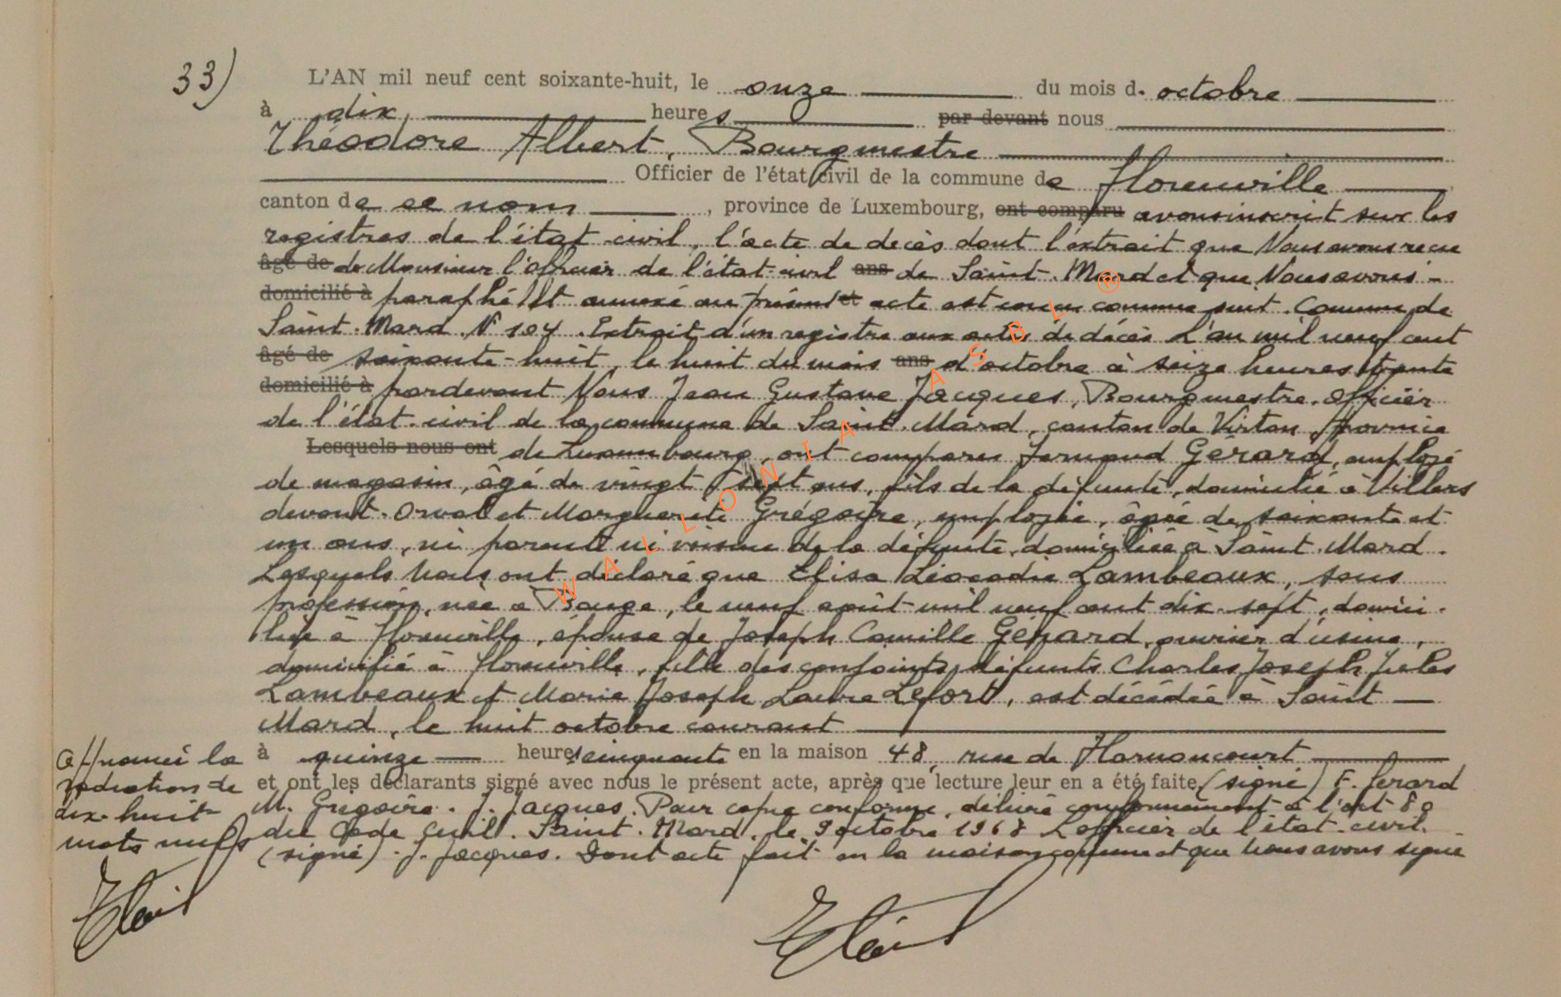 33)
L'AN mil neuf cent soixante-huit, le onze du mois d. octobre
à dix heures par devant nous
Théodore Albert, Bourgmestre
Officier de l'état civil de la commune de Florenville
canton de ce nom, province de Luxembourg, ont comparu avons inscrit sur les
registres de l'état civil, l'acte de decès dont l'extrait que Nous avons reçu
âgé de de Monsieur l'officier de l'état-civil ans de Saint-Mard et que Nous avons
domicilié à paraphé et annexé au présent et acte est conçu comme suit. Commune de
Saint-Mard. N° 104. Extrait d'un registre aux actes de décès L'an mil neuf cent
âgé de soixante-huit, le huit du mois ans d'octobre à seize heures trente
domicilié à pardevant Nous Jean Gustave Jacques, Bourgmestre. officier
de l'état-civil de la commune de Saint-Mard, canton de Virton, Province
Lesquels nous ont de Luxembourg, ont comparu Fernand Gérard, employé
de magasin, âgé de vingt sept ans, fils de la défunte, domicilié à Villers
devant-Orval et Marguerite Grégoire, employée, âgée de soixante et
un ans, ni parente ni voisine de la défunte, domiciliée à Saint-Mard.
Lesquels Nous ont déclaré que Elisa Léocadie Lambeaux, sans
profession, née à Bouge, le neuf août mil neuf cent dix-sept, domici-
liée à Florenville, épouse de Joseph Camille Gérard, ouvrier d'usine,
domicilié à Florenville, fille des conjoints défunts Charles Joseph Jules
Lambeaux et Marie Joseph Laure Lefort, est décédée à Saint
Mard, le huit octobre courant
à quinze heures cinquante en la maison 48, rue de Harnoncourt
et ont les déclarants signé avec nous le présent acte, après que lecture leur en a été faite (signé) F. Gerard
M. Grégoire. J. Jacques. Pour copie conforme, délivré conformément à l'art 80
du Code Civil. Saint-Mard, le 9 octobre 1968 L'officier de l'état-civil.
(signé). J. Jacques. Dont acte fait en la maison commune et que Nous avons signé
Approuvé la
radiation de
dix-huit
mots nuls
WALLONIA ASBL ®